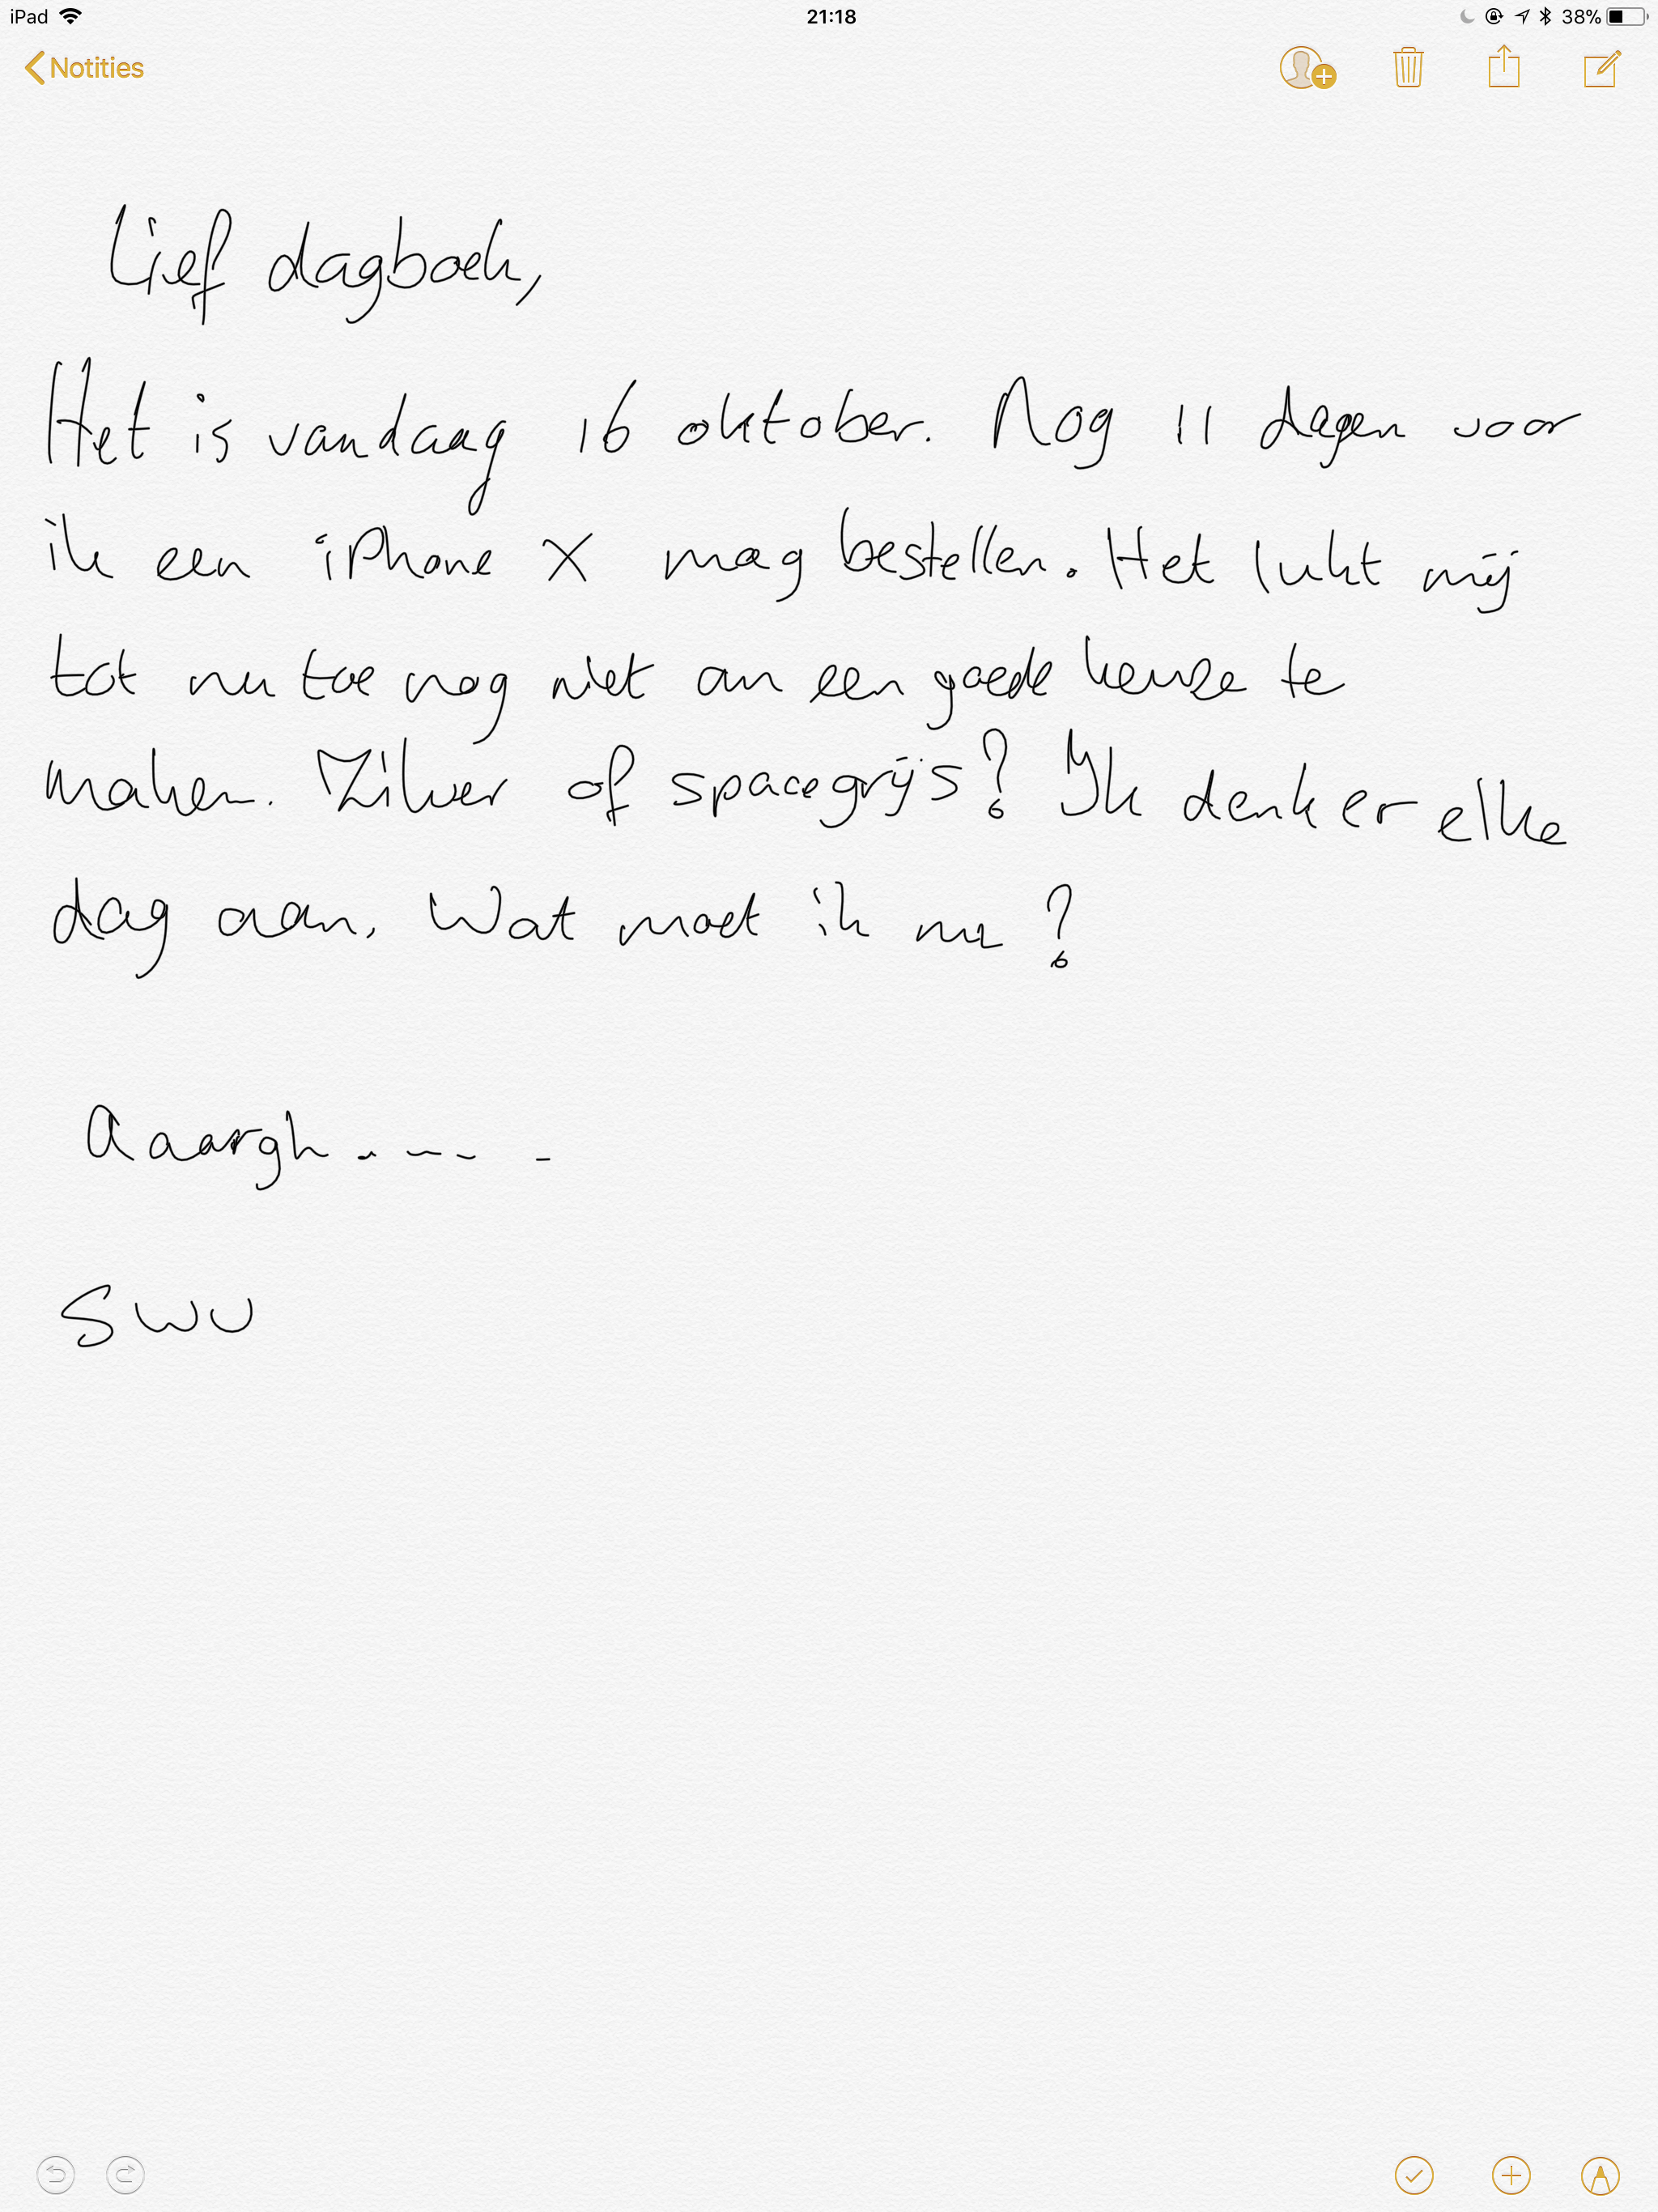 iPad
21:18
38%
Notities
Lief dagboek,
Het is vandaag 16 oktober. Nog 11 dagen voor
ik een iPhone X mag bestellen. Het lukt mij
tot nu toe nog niet om een goede keuze te
maken. Zilver of spacegrijs? Ik denk er elke
dag aan. Wat moet ik nu?
Aaargh.....
SWU